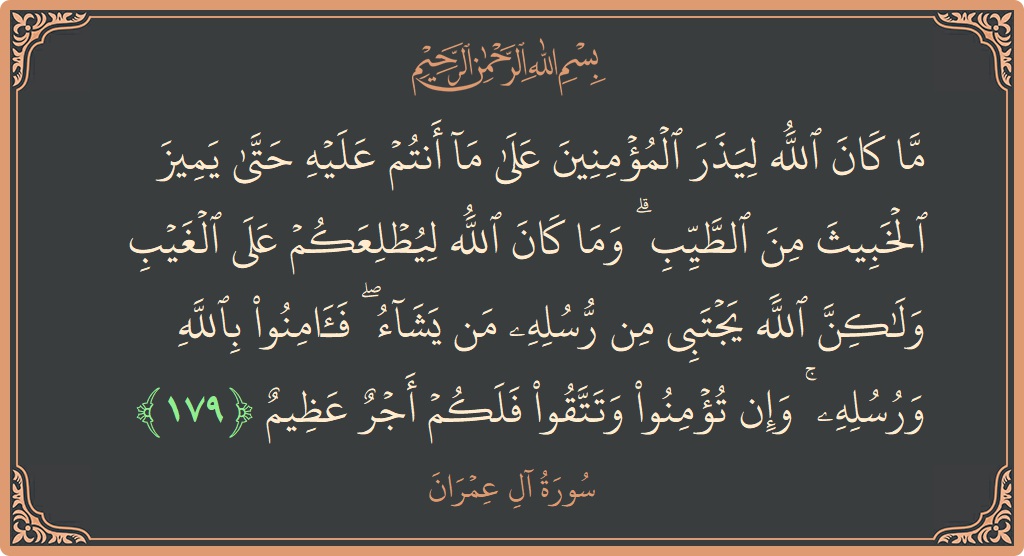 بِسْمِ اللهِ الرَّحْمٰنِ الرَّحِيْمِ
مَّا كَانَ ٱللَّهُ لِيَذَرَ ٱلْمُؤْمِنِينَ عَلَىٰ مَآ أَنتُمْ عَلَيْهِ حَتَّىٰ يَمِيزَ
ٱلْخَبِيثَ مِنَ ٱلطَّيِّبِ ۗ وَمَا كَانَ ٱللَّهُ لِيُطْلِعَكُمْ عَلَى ٱلْغَيْبِ
وَلَـٰكِنَّ ٱللَّهَ يَجْتَبِى مِن رُّسُلِهِۦ مَن يَشَآءُ ۖ فَـَٔامِنُوا۟ بِٱللَّهِ
وَرُسُلِهِۦ ۚ وَإِن تُؤْمِنُوا۟ وَتَتَّقُوا۟ فَلَكُمْ أَجْرٌ عَظِيمٌ ﴿١٧٩﴾
سُورَةُ آلِ عِمْرَانَ